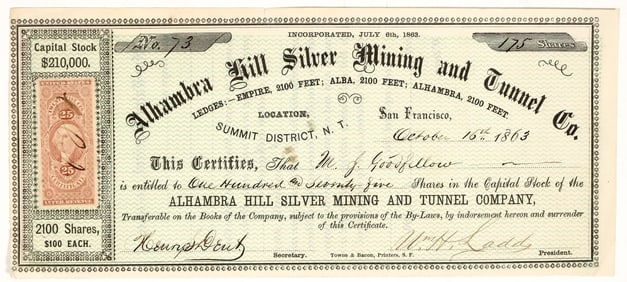 INCORPORATED, JULY 6th, 1863.
No. 73
175 Shares
Capital Stock
$210,000.
Alhambra Hill Silver Mining and Tunnel Co.
LEDGES:—EMPIRE, 2100 FEET; ALBA, 2100 FEET; ALHAMBRA, 2100 FEET.
LOCATION,
SUMMIT DISTRICT, N. T.
San Francisco,
October 15th 1863
25
25
This Certifies, That M. J. Goodfellow
is entitled to One Hundred and Seventy five Shares in the Capital Stock of the
ALHAMBRA HILL SILVER MINING AND TUNNEL COMPANY,
Transferable on the Books of the Company, subject to the provisions of the By-Laws, by indorsement hereon and surrender
of this Certificate.
2100 Shares,
$100 EACH.
Henry S Dent
Secretary.
Towne & Bacon, Printers, S. F.
Wm H. Ladd
President.